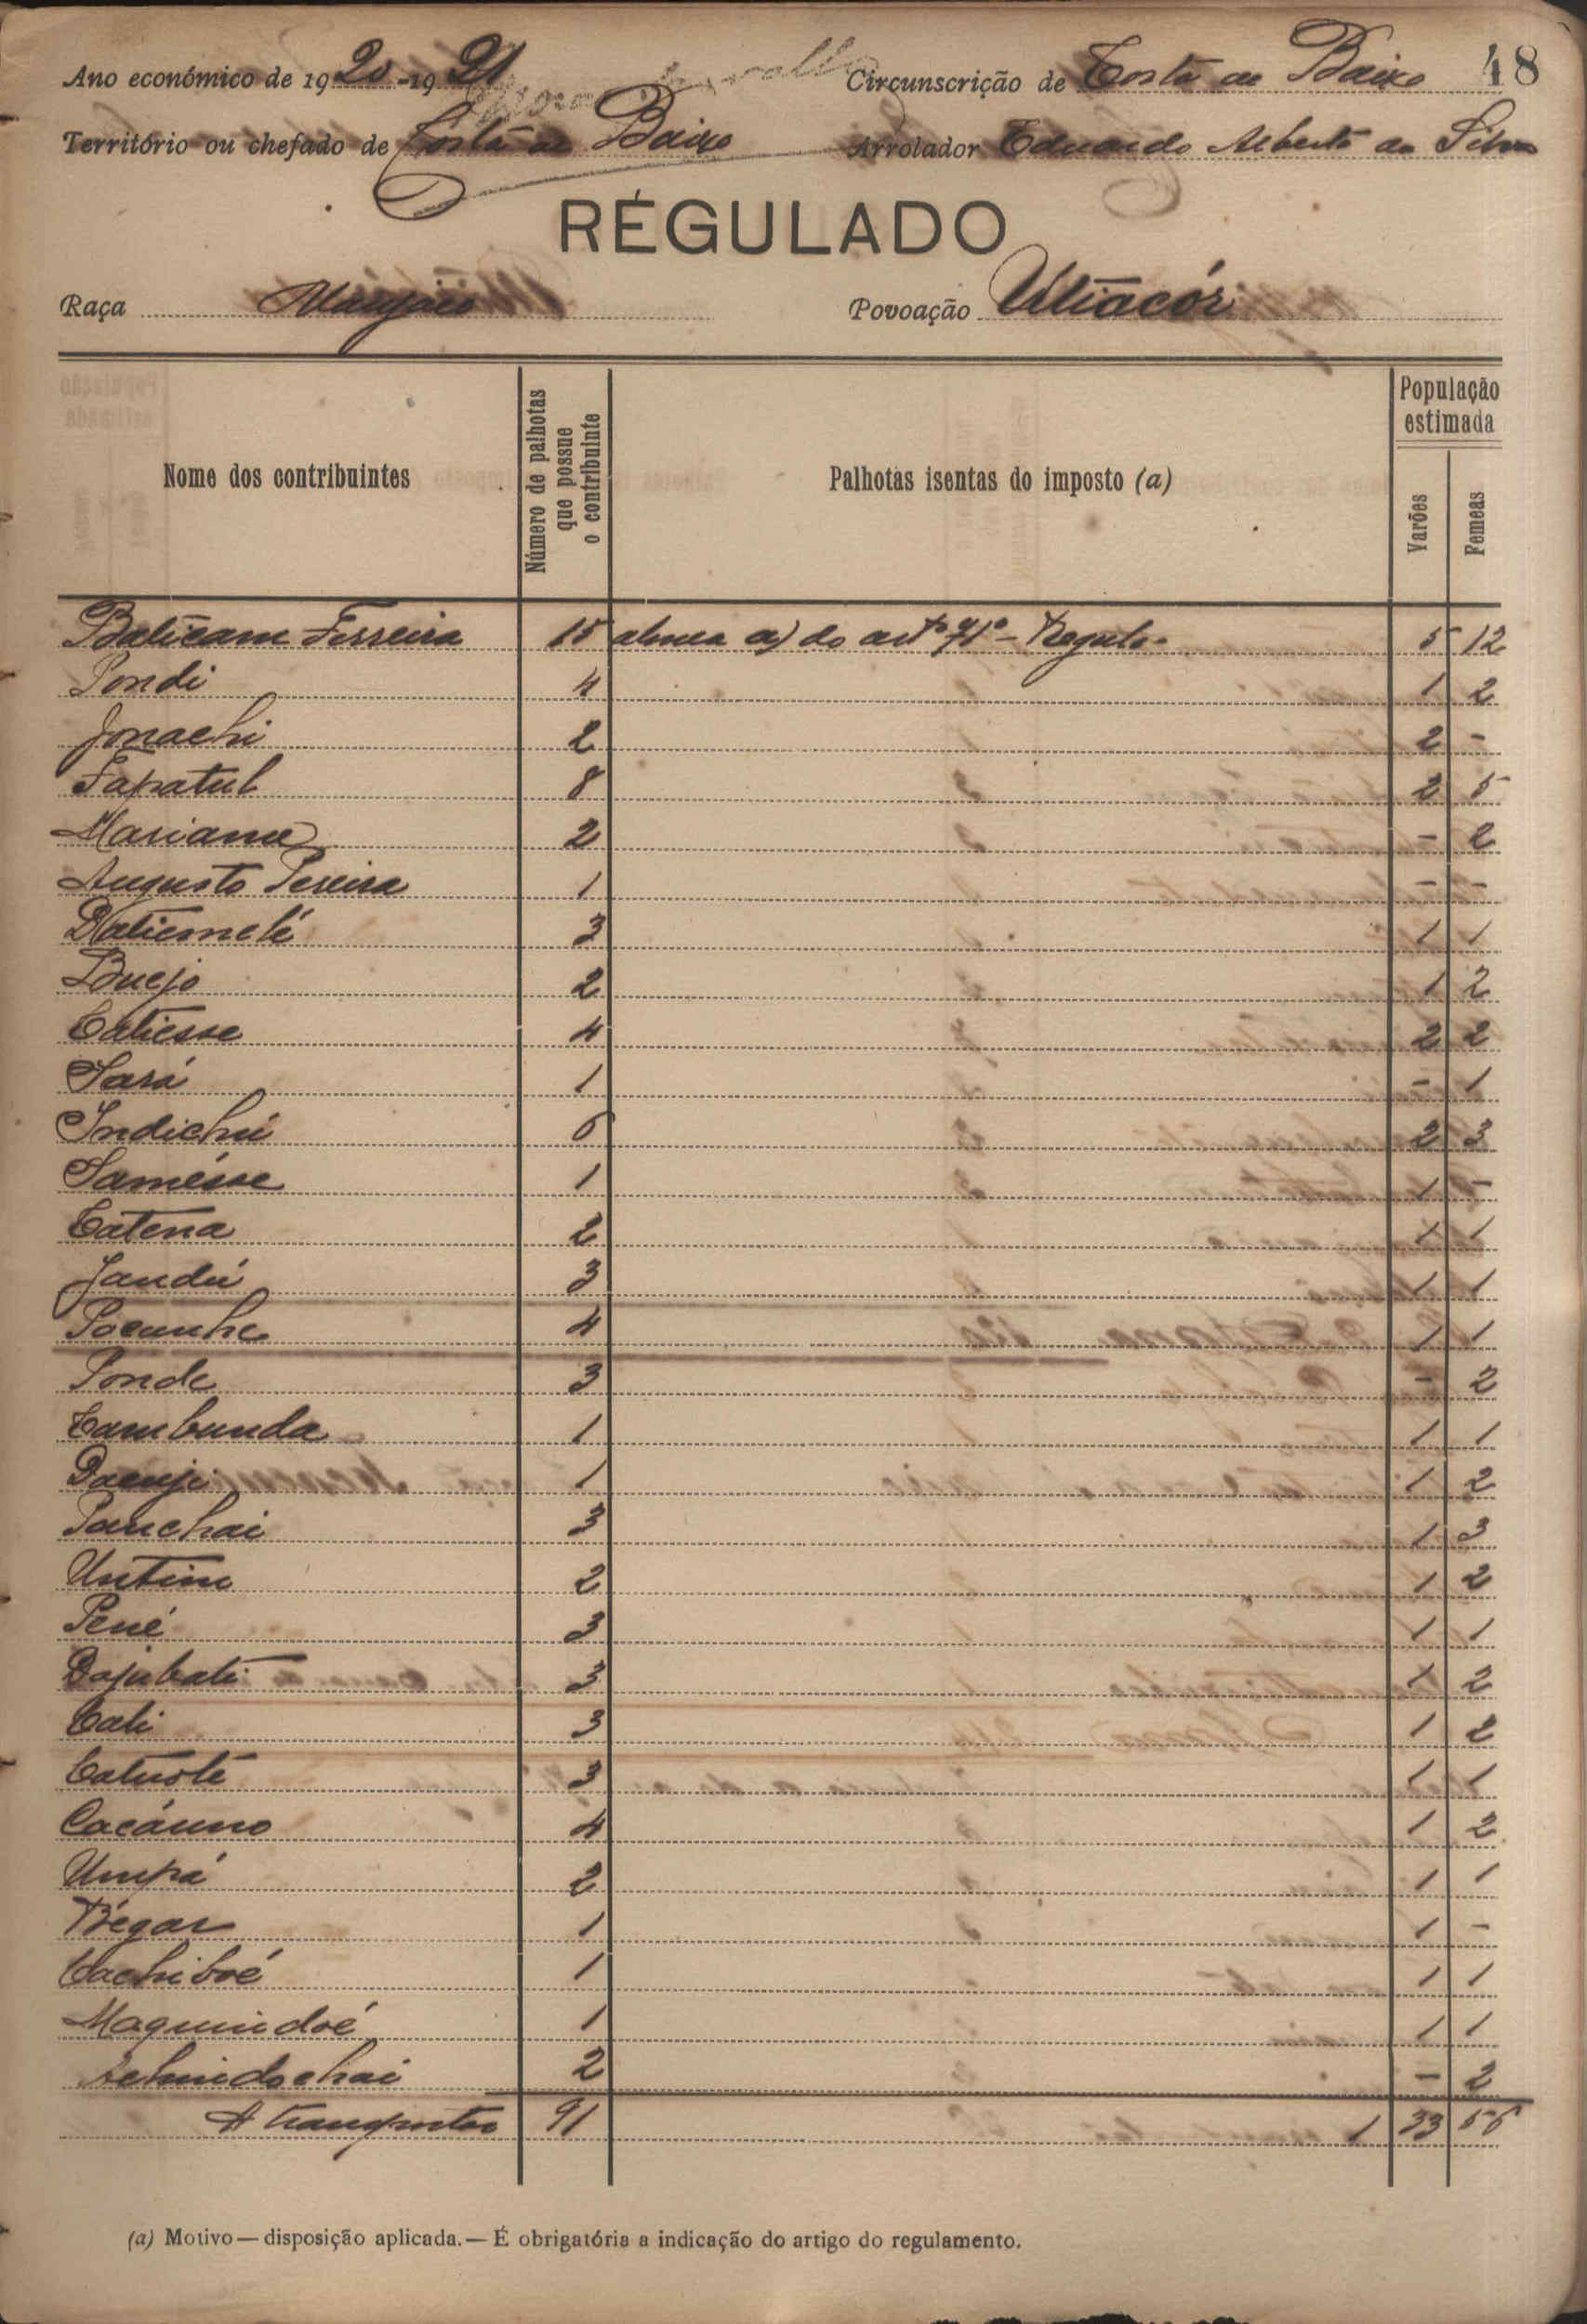 Ano económico de 1920-1921 Circunscrição de Costa de Baixo 48
Território ou chefado de Costa de Baixo Arrolador Eduardo Alberto da Silva
REGULADO
Raça Manjaco Povoação Utiacór
Nome dos contribuintes Número de palhotas que possue o contribuinte Palhotas isentas do imposto (a) População estimada Varões Femeas
Baticam Ferreira 15 alinea a) do artº 71º - Regulo 5 12
Pondi 4 1 2
Jonachi 2 2 -
Fapatul 8 2 5
Mariama 2 - 2
Augusto Pereira 1 - -
Batiemelé 3 1 1
Buejo 2 1 2
Catiesse 4 2 2
Sará 1 - 1
Indichú 6 2 3
Samésse 1 1 -
Catena 2 1 1
Jandú 3 1 1
Pocunhe 4 1 1
Ponde 3 - 2
Cambunda 1 1 1
1 1 2
Panchai 3 1 3
Untine 2 1 2
Pené 3 1 1
Dajubati 3 1 2
Cali 3 1 2
Catusté 3 1 1
Cacáuno 4 1 2
Umpá 2 1 1
Bégar 1 1 -
Cachiboé 1 1 1
Maquindoé 1 1 1
2 - 2
A transportar 91 1 33 56
(a) Motivo — disposição aplicada. — É obrigatória a indicação do artigo do regulamento.